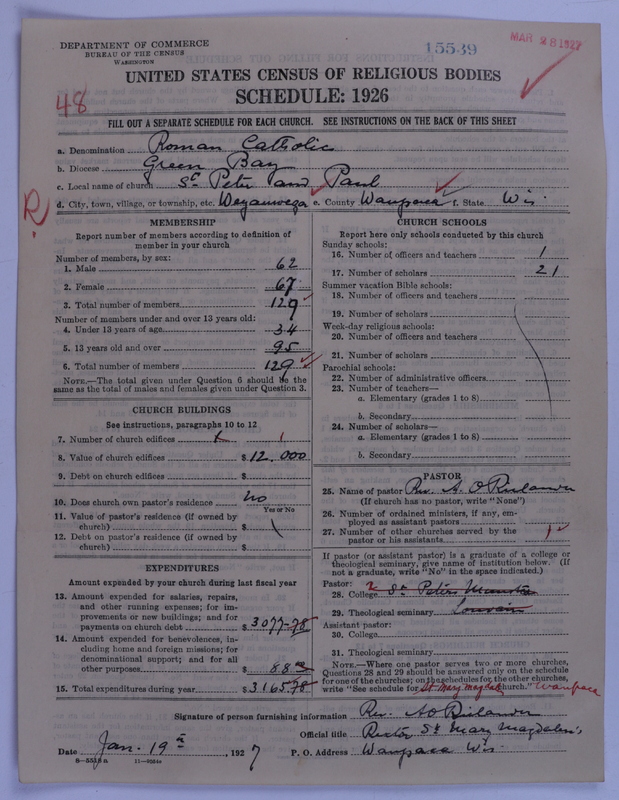 DEPARTMENT OF COMMERCE
BUREAU OF THE CENSUS
WASHINGTON
15539
MAR 28 1927
UNITED STATES CENSUS OF RELIGIOUS BODIES
SCHEDULE: 1926
48
FILL OUT A SEPARATE SCHEDULE FOR EACH CHURCH. SEE INSTRUCTIONS ON THE BACK OF THIS SHEET
a. Denomination Roman Catholic
b. Diocese Green Bay
c. Local name of church St Peter and Paul
d. City, town, village, or township, etc. Weyauwega e. County Waupaca f. State Wis.
R
MEMBERSHIP
Report number of members according to definition of
member in your church
Number of members, by sex:
1. Male 62
2. Female 67
3. Total number of members 129
Number of members under and over 13 years old:
4. Under 13 years of age 34
5. 13 years old and over 95
6. Total number of members 129
NOTE.—The total given under Question 6 should be the
same as the total of males and females given under Question 3.
CHURCH BUILDINGS
See instructions, paragraphs 10 to 12
7. Number of church edifices 1
8. Value of church edifices $12.000
9. Debt on church edifices $
10. Does church own pastor's residence No
Yes or No
11. Value of pastor's residence (if owned by
church) $
12. Debt on pastor's residence (if owned by
church) $
EXPENDITURES
Amount expended by your church during last fiscal year
13. Amount expended for salaries, repairs,
and other running expenses; for im-
provements or new buildings; and for
payments on church debt $3077.78
14. Amount expended for benevolences, in-
cluding home and foreign missions; for
denominational support; and for all
other purposes $88.00
15. Total expenditures during year $3165.78
CHURCH SCHOOLS
Report here only schools conducted by this church
Sunday schools:
16. Number of officers and teachers 1
17. Number of scholars 21
Summer vacation Bible schools:
18. Number of officers and teachers
19. Number of scholars
Week-day religious schools:
20. Number of officers and teachers
21. Number of scholars
Parochial schools:
22. Number of administrative officers
23. Number of teachers—
a. Elementary (grades 1 to 8)
b. Secondary
24. Number of scholars—
a. Elementary (grades 1 to 8)
b. Secondary
PASTOR
25. Name of pastor Rev. A. O
(If church has no pastor, write "None")
26. Number of ordained ministers, if any, em-
ployed as assistant pastors
27. Number of other churches served by the
pastor or his assistants 1
If pastor (or assistant pastor) is a graduate of a college or
theological seminary, give name of institution below. (If
not a graduate, write "No" in the space indicated.)
Pastor:
28. College St Peters
29. Theological seminary Louvain
Assistant pastor:
30. College
31. Theological seminary
NOTE.—Where one pastor serves two or more churches,
Questions 28 and 29 should be answered only on the schedule
for one of the churches; on the schedules for the other churches,
write "See schedule for St. Mary Magdal church." Waupaca
Signature of person furnishing information Rev. A O
Official title Rector St Mary Magdalen's
Date Jan. 19th, 1927
P. O. Address Waupaca Wis.
8—5519a 11—9554